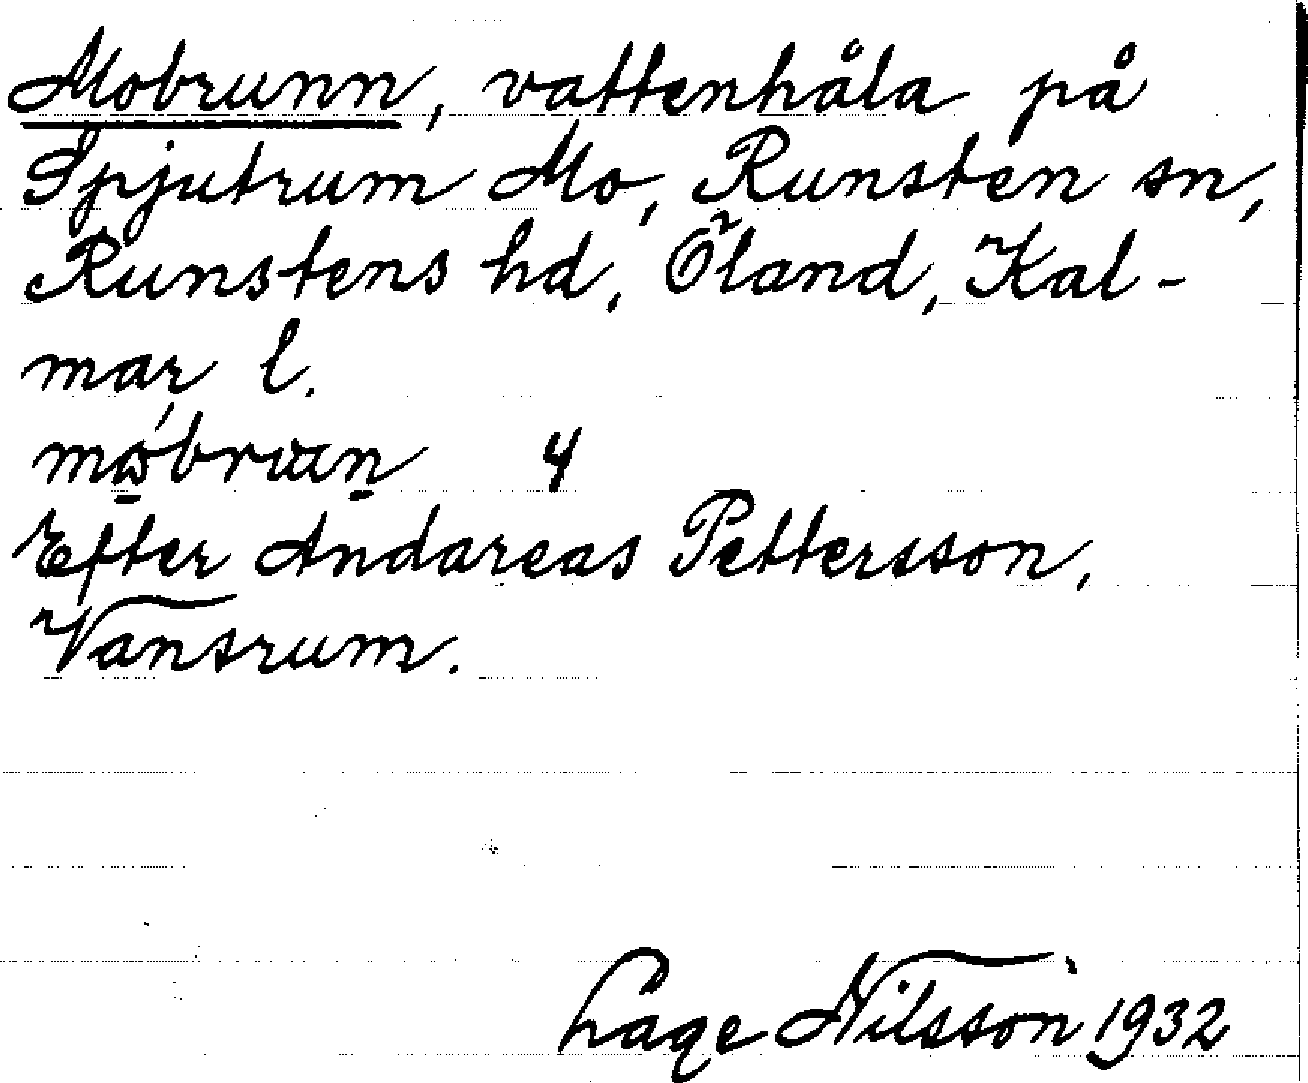 Mobrunn, vattenhåla på
Spjutrum Mo, Runsten sn,
Runstens hd, Öland, Kal-
mar l.
4
Efter Andareas Pettersson,
Vansrum.
Lage Nilsson 1932